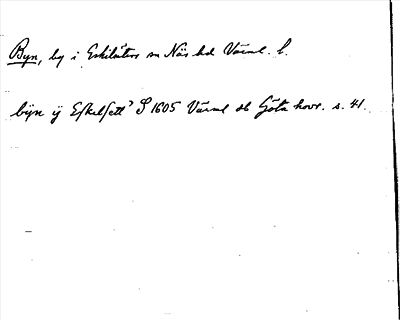 Byn, by i Eskilsäters sn Näs hd Värml. l.
bÿn ÿ Eskelsett S 1605 Värml ob Göta hovr. s. 41.